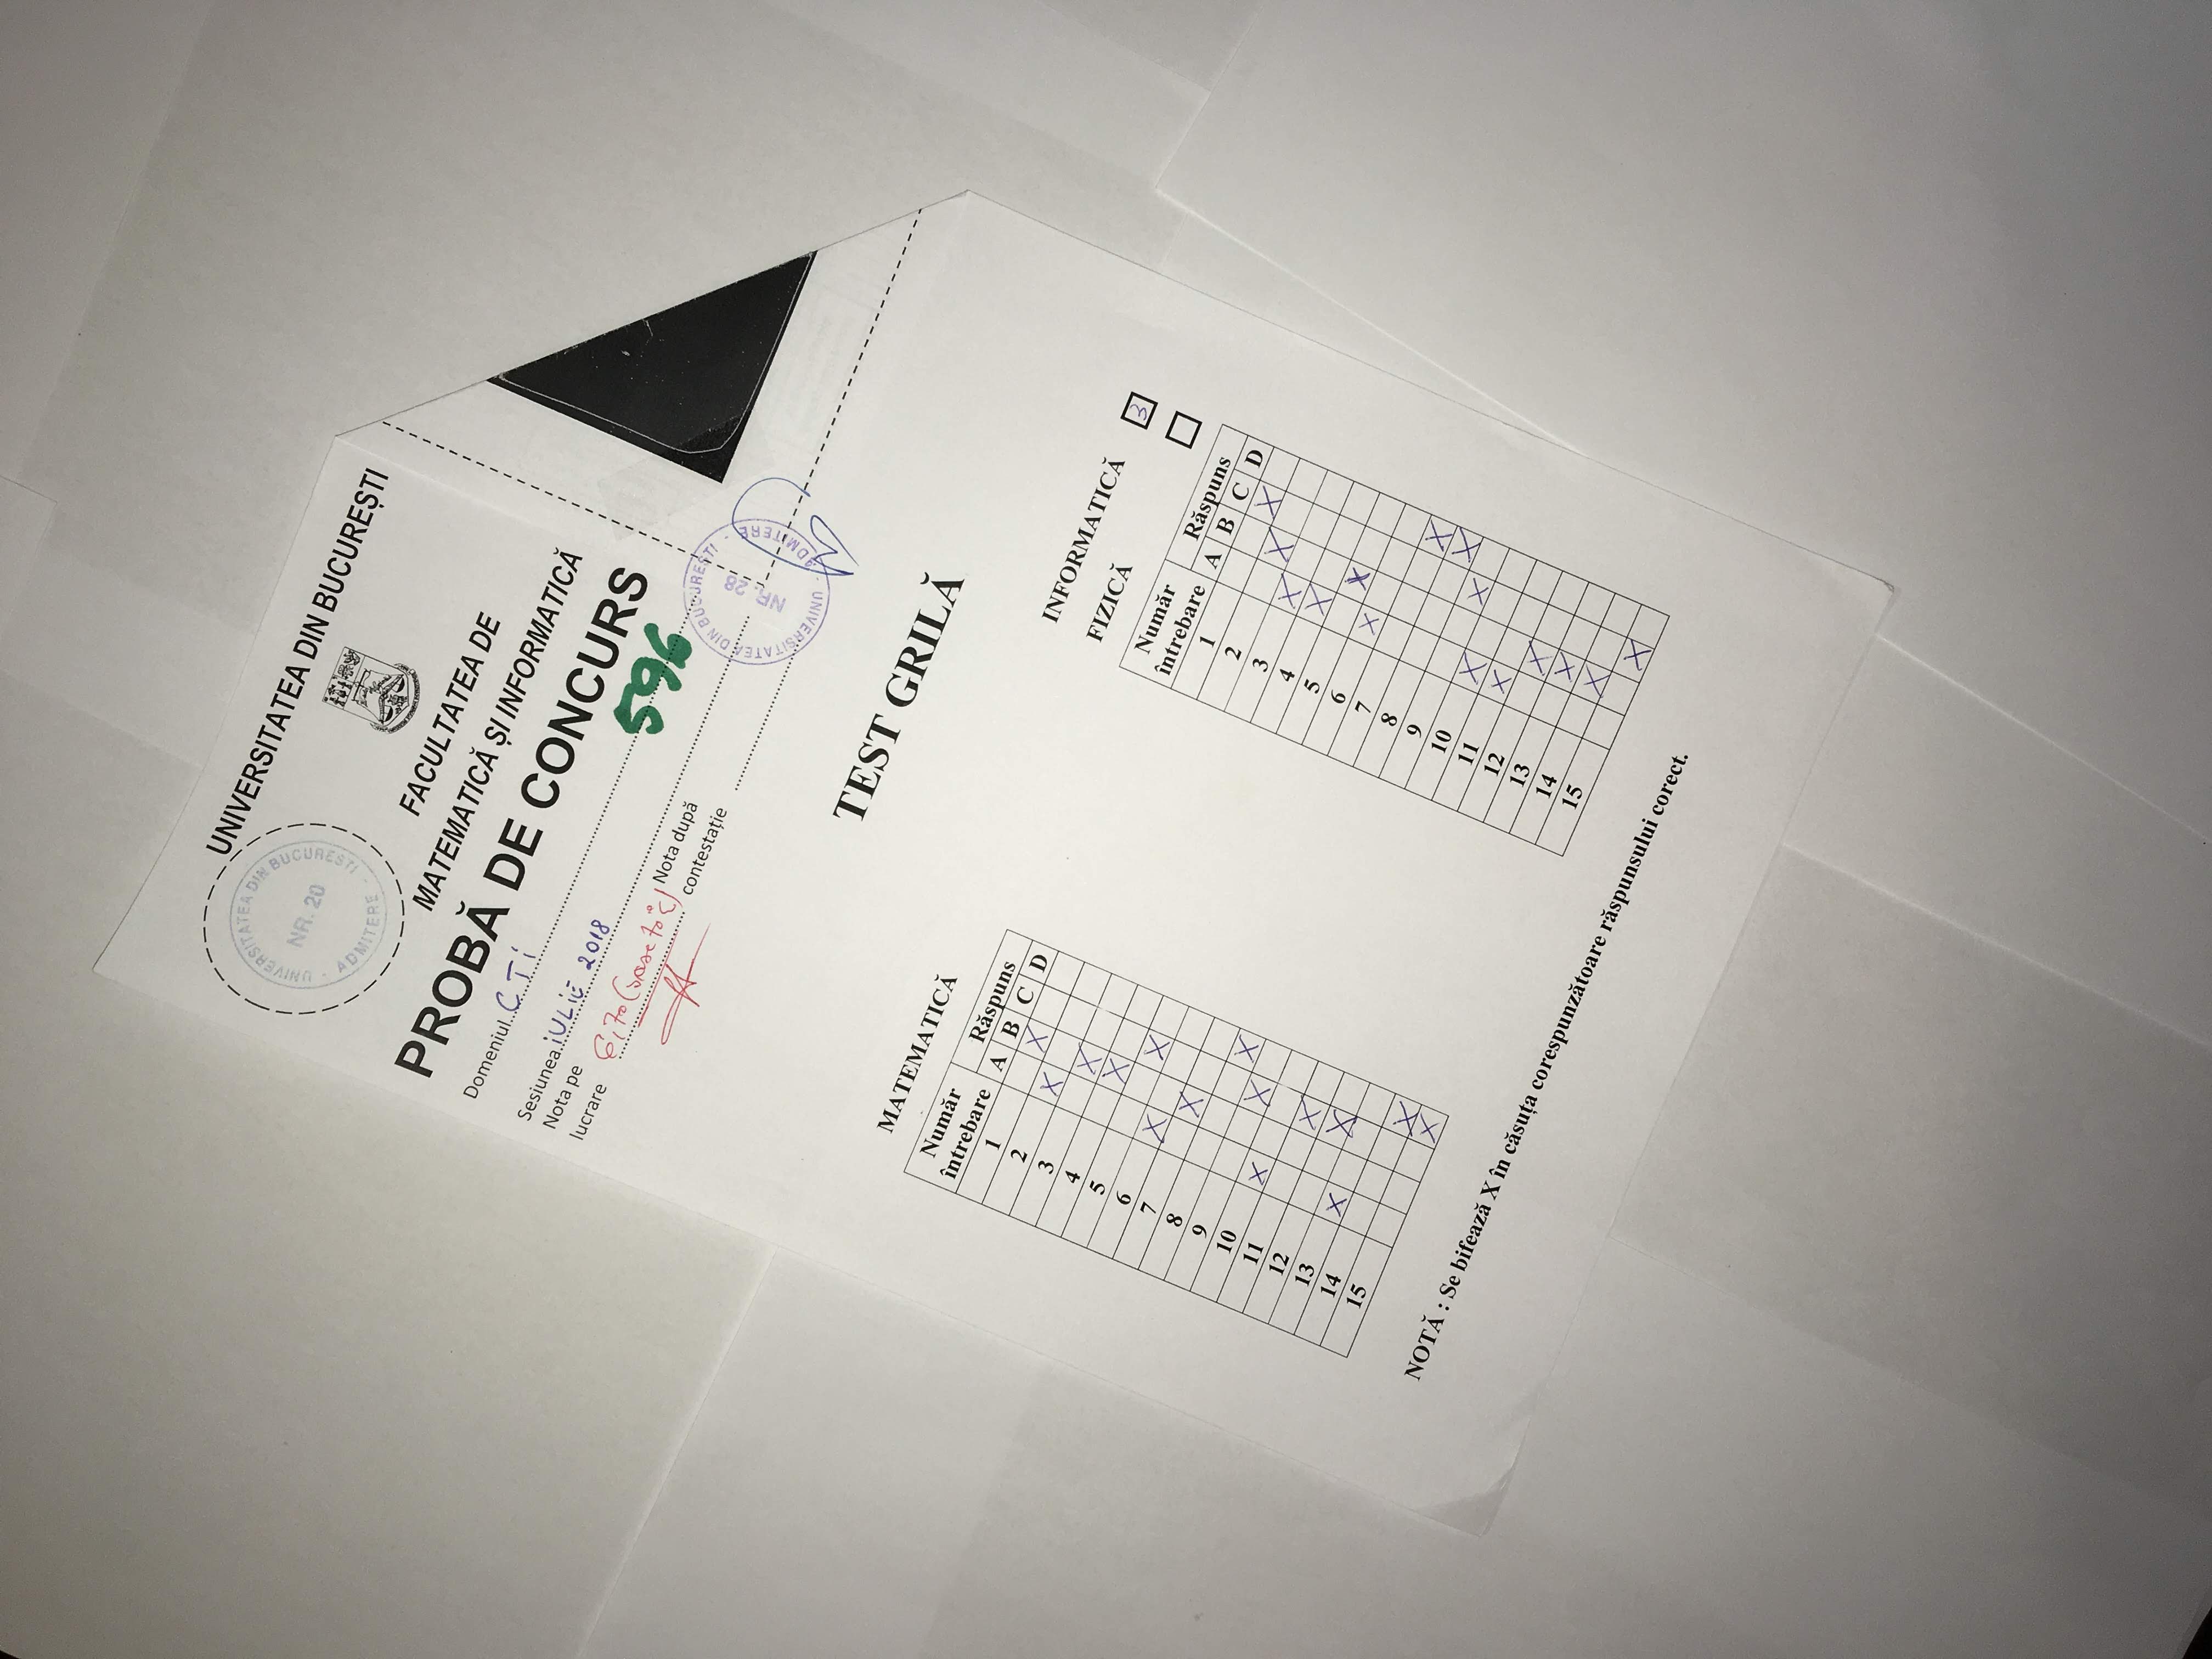 UNIVERSITATEA DIN BUCUREȘTI
UNIVERSITATEA DIN BUCUREȘTI
NR. 20
ADMITERE
FACULTATEA DE
MATEMATICĂ ȘI INFORMATICĂ
PROBĂ DE CONCURS
Domeniul CTi
596
Sesiunea iULiE 2018
Nota pe lucrare 6,70 (șase 70%)
Nota după contestație
UNIVERSITATEA DIN BUCUREȘTI
NR. 28
ADMITERE
TEST GRILĂ
MATEMATICĂ
Număr întrebare Răspuns
A B C D
1 X
2 X
3 X
4 X
5 X
6 X
7 X
8 X
9 X
10 X
11 X
12 X
13 X
14 X
15 X
INFORMATICĂ 3
FIZICĂ
Număr întrebare Răspuns
A B C D
1 X
2 X
3 X
4 X
5 X
6 X
7 X
8 X
9 X
10 X
11 X
12 X
13 X
14 X
15 X
NOTĂ : Se bifează X în căsuța corespunzătoare răspunsului corect.